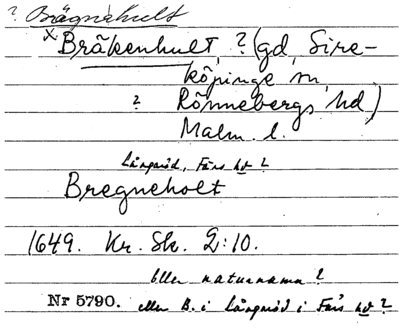 ? Brägnehult
x Bräkenhult, ? (gd, Sire-
köpinge sn,
? Rönnebergs hd)
Malm. l.
Långaröd, Färs hd ?
Bregneholt
1649. Kr. Sk. 2:10.
eller naturnamn ?
Nr 5790. eller B. i Långaröd i Färs hd ?